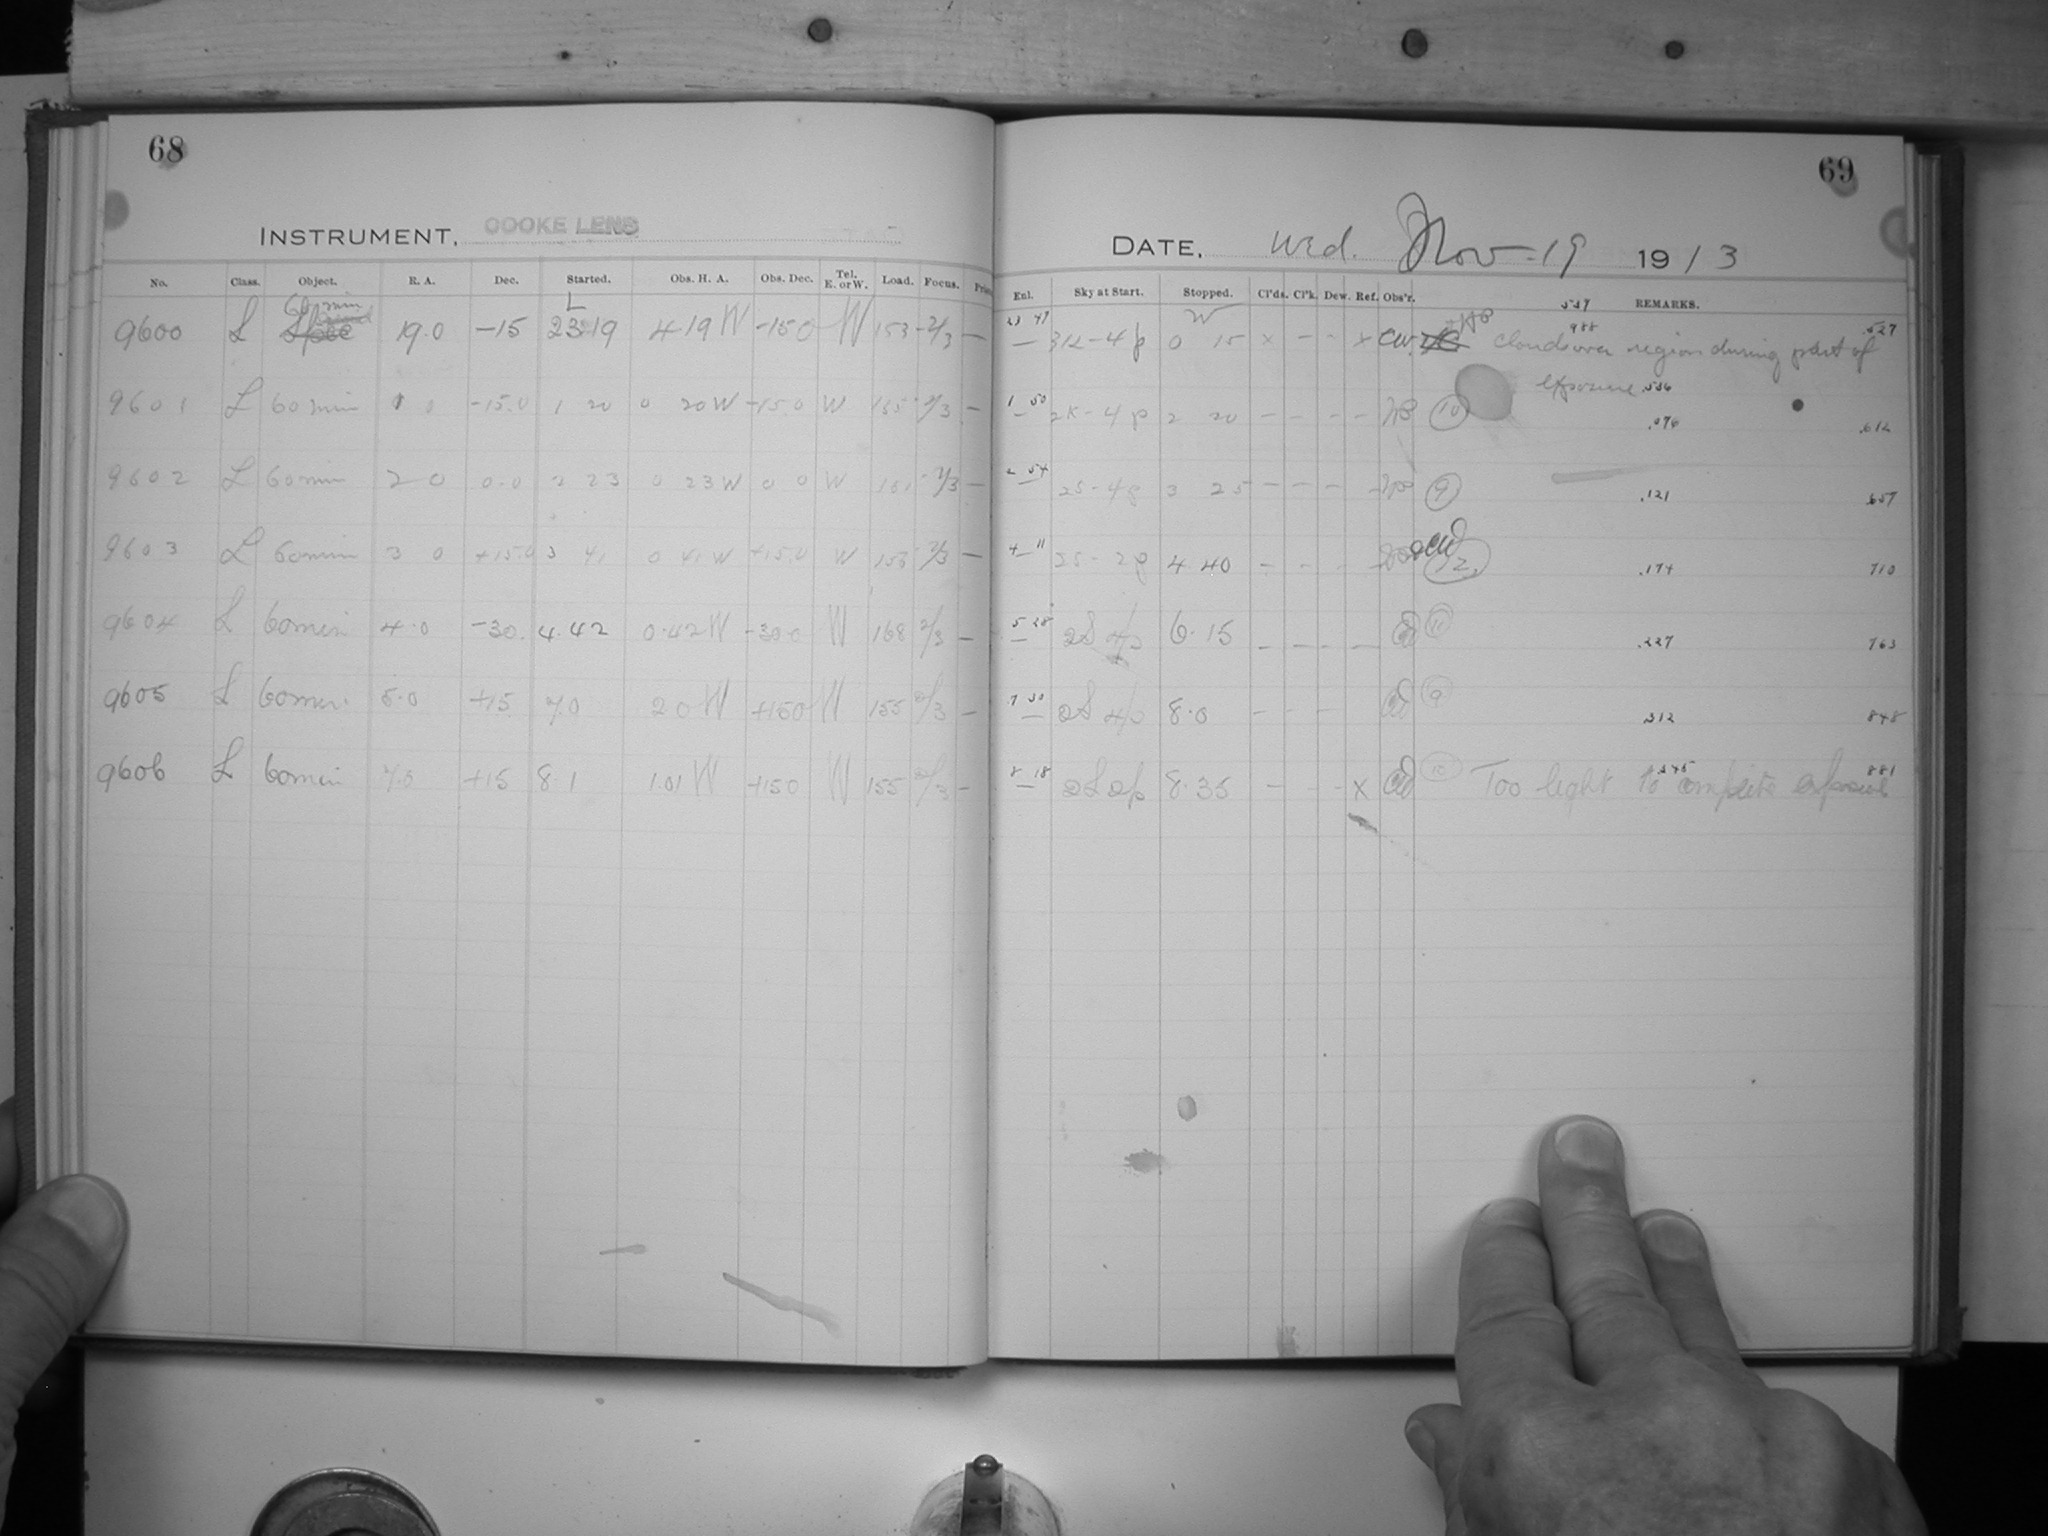 68
INSTRUMENT, COOKE LENS
No. Class. Object. R. A. Dec. Started. Obs. H. A. Obs. Dec. Tel. E. or W. Load. Focus.
60 min
9600 L 19.0 -15 23 19 4 19 W -15 0 W 153 -2/3 —
9601 L 60 min 1 0 -15.0 1 20 0 20 W -15.0 W 155 -2/3 —
9602 L 60 min 2 0 0.0 2 23 0 23 W 0 0 W 161 -2/3 —
9603 L 60 min 3 0 +15.0 3 41 0 41 W +15.0 W 153 2/3 —
9604 L 60 min 4.0 -30. 4.42 0.42 W -30 0 W 168 2/3 —
9605 L 60 min. 5.0 +15 7.0 2 0 W +15 0 W 155 2/3 —
9606 L 60 min +15 8.1 1.01 W +15 0 W 155 2/3 —
69
DATE, Wed. Nov. 19 1913
Enl. Sky at Start. Stopped. Cl'ds. Cl'k. Dew. Ref. Obs'r. REMARKS.
23 47 — 4p 0 15 x - - x CW. Clouds over region during part of .527
exposure .536
1 50 — 2K-4p 2 20 - - - - 10 .076 .612
2 54 — 2S-4p 3 25 - - - - 9 .121 .657
4 11 — 2S-2p 4.40 - - - - 12. .174 710
5 28 — 2S 4p 6.15 - - - - 11 .227 763
7 30 — 2S 4p 8.0 - - - 9 .312 848
8 18 — 2S 2p 8.35 - - - x 10 Too light to complete exposure .345 881